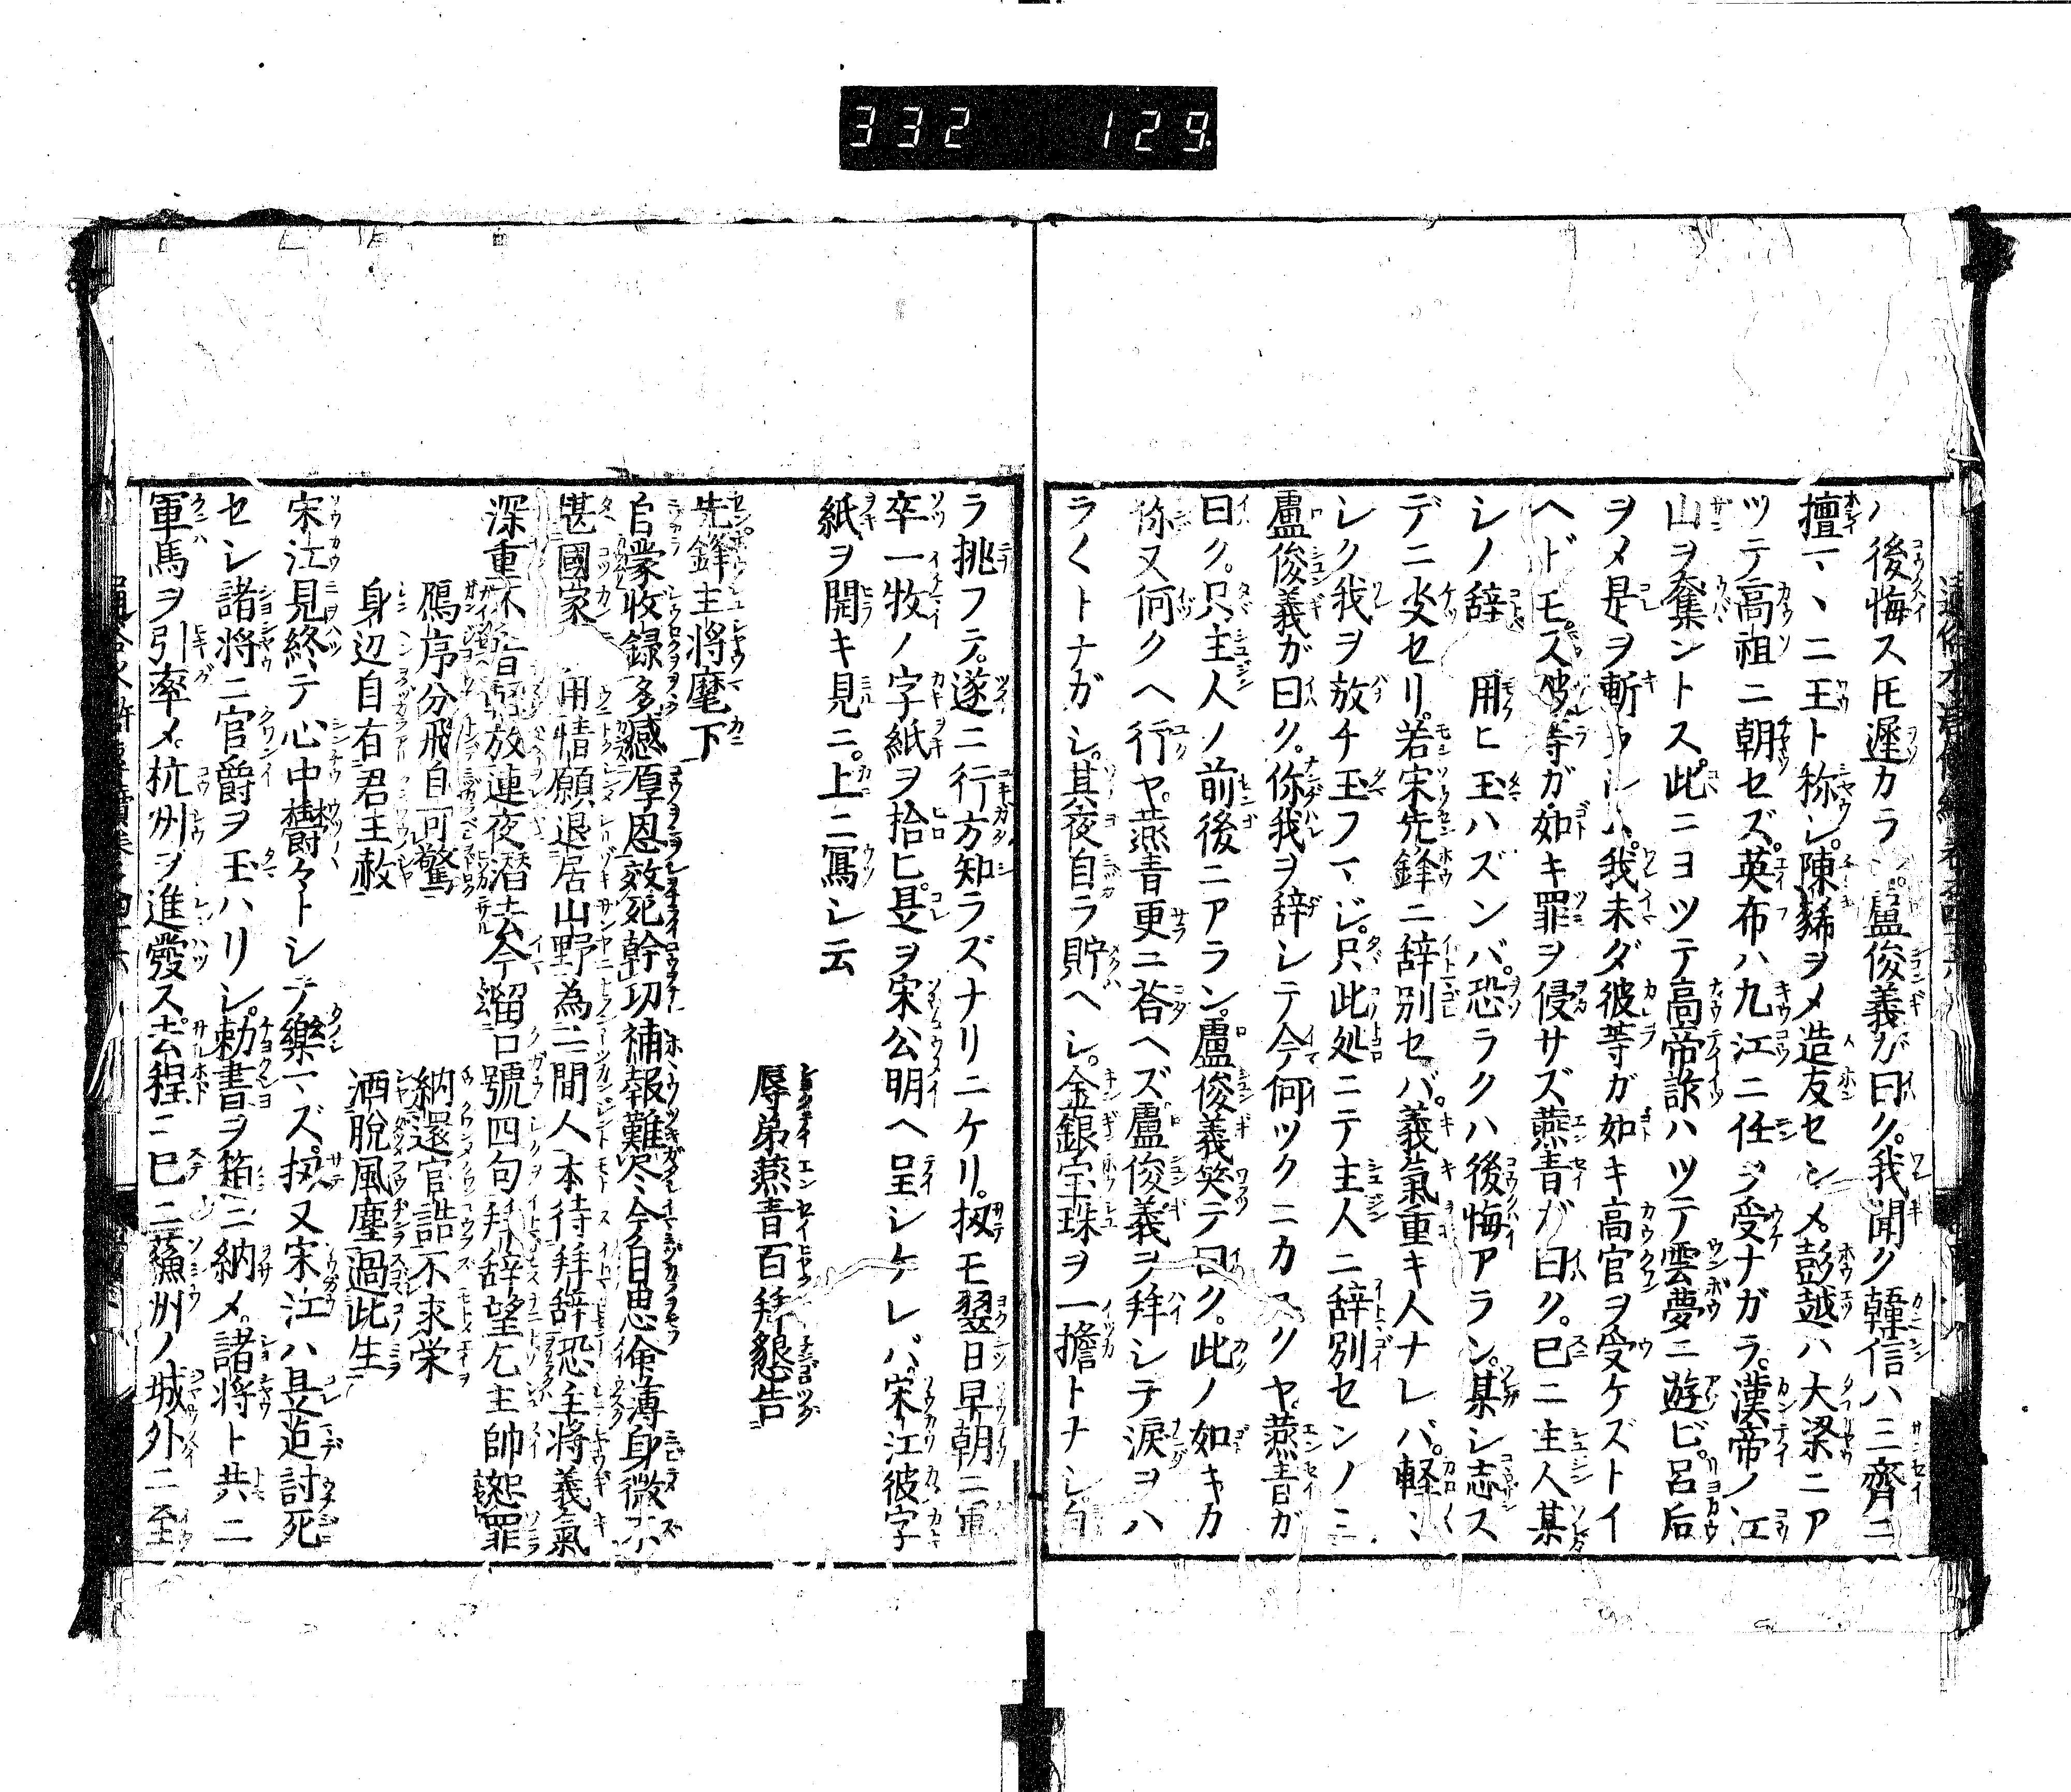 332 129
ハ後悔ス𪜈遲カラン盧俊義ガ曰ク。我聞ク韓信ハ三齊ニ
擅マヽニ王ト称シ。陳豨ヲメ造反セシメ。彭越ハ大梁ニア
ツテ高祖ニ朝セズ。英布ハ九江ニ任ヲ受ナガラ。漢帝ノ江
山ヲ奪ントス。此ニヨツテ高帝詐ハツテ雲夢ニ遊ビ。呂后
ヲメ是ヲ斬シム。我未ダ彼等ガ如キ高官ヲ受ケズトイ
ヘドモ。又彼等ガ如キ罪ヲ侵サズ燕青ガ曰ク。已ニ主人某
シノ辞 用ヒ玉ハズンバ。恐ラクハ後悔アラン。某シ志ス
デニ决セリ。若宋先鋒ニ辞別セバ。義氣重キ人ナレバ。軽ヽ
シク我ヲ放チ玉フマジ。只此処ニテ主人ニ辞別センノミ
盧俊義ガ曰ク。你我ヲ辞シテ今何ツクニカユクヤ。燕青ガ
曰ク。只主人ノ前後ニアラン。盧俊義笑テ曰ク。此ノ如キカ
你又何クヘ行ヤ。燕青更ニ荅ヘズ盧俊義ヲ拜シテ涙ヲハ
ラくトナガシ。其夜自ラ貯ヘシ。金銀宝珠ヲ一擔トナシ自
ラ挑フテ。遂ニ行方知ラズナリニケリ。扨モ翌日早朝ニ軍
卒一牧ノ字紙ヲ拾ヒ。是ヲ宋公明ヘ呈シケレバ。宋江彼字
紙ヲ開キ見ニ。上ニ寫シ云
辱弟燕青百拜懇告
先鋒主將麾下
自蒙收録多感厚恩效死幹功補報難尽今自思命薄身微不
堪國家 用情願退居山野為一間人本待拜辞恐主將義氣
深重不肯輕放連夜潜去今留口號四句拜辞望乞主帥恕罪
鴈序分飛自可驚 納還官誥不求栄
身辺自有君王赦 洒脫風塵過此生
宋江見終テ心中欝々トシテ樂マズ。扨又宋江ハ是迠討死
セシ諸将ニ官爵ヲ玉ハリシ。勅書ヲ箱ニ納メ。諸将ト共ニ
軍馬ヲ引率メ。杭州ヲ進發ス。去程ニ已ニ蘓州ノ城外ニ至